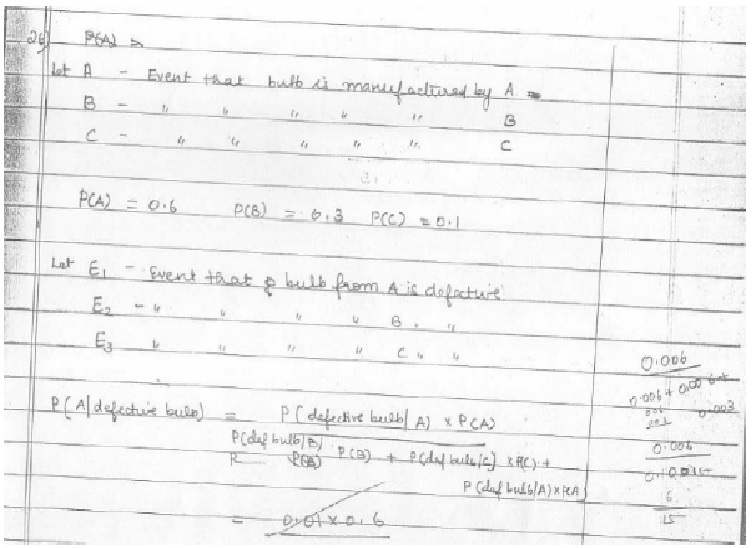 26) P(A) =
Let A - Event that bulb is manufactured by A
B - " " " " " B
C - " " " " " C
P(A) = 0.6 P(B) = 0.3 P(C) = 0.1
Let E1 - Event that bulb from A is defective
E2 - " " " " B " "
E3 " " " " C " "
P(A/defective bulb) = P(defective bulb/A) x P(A)
P(def bulb/B)
P(A) P(B) + P(def bulb/C) x P(C) +
P(def bulb/A) x P(A)
= 0.01 x 0.6
0.006
0.006 + 0.003
0.006
6
15